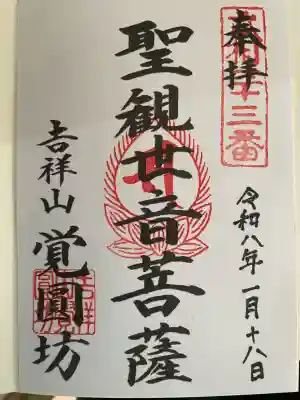 奉拝
十三番
令和八年一月十八日
聖観世音菩薩
吉祥山 覚圓坊